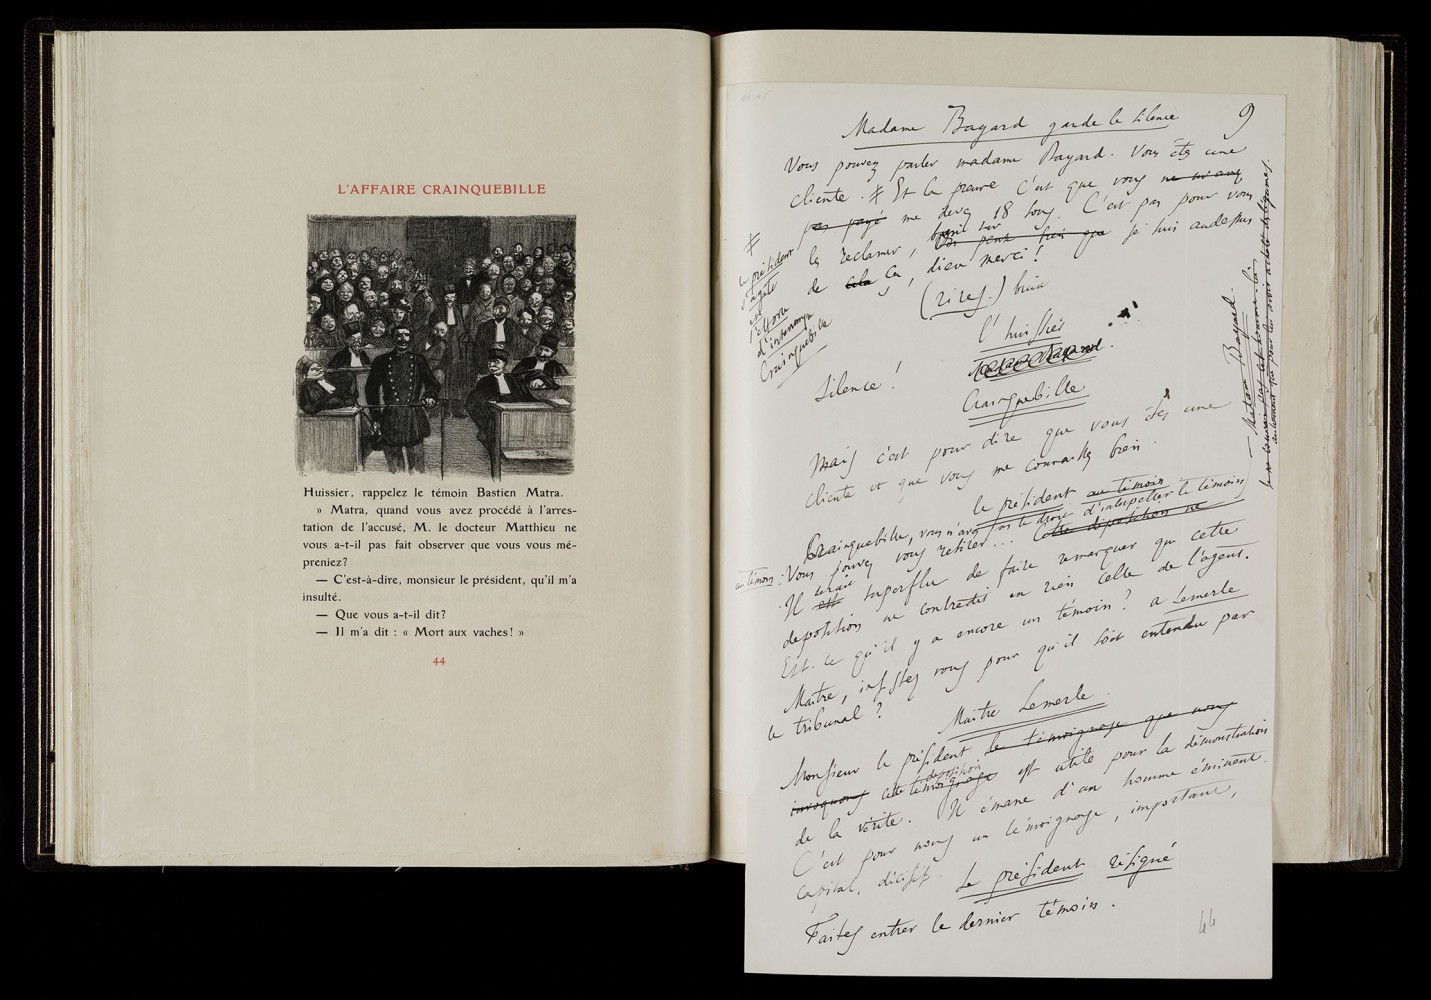 L'AFFAIRE CRAINQUEBILLE
Huissier, rappelez le témoin Bastien Matra.
» Matra, quand vous avez procédé à l'arres-
tation de l'accusé, M. le docteur Matthieu ne
vous a-t-il pas fait observer que vous vous mé-
preniez?
— C'est-à-dire, monsieur le président, qu'il m'a
insulté.
— Que vous a-t-il dit?
— Il m'a dit : « Mort aux vaches! »
44
9
Madame Bayard garde le silence
Vous pouvez parler madame Bayard. Vous êtes une
cliente. ⌗ Et la preuve c'est que vous ne m'avez
pas payé me devez 18 sous. C'est pas pour vous
les réclamer, je suis au dessus
de cela ça, dieu merci!
(rires.) bruit
⌗
le président
s'agite
et
s'efforce
d'interrompre
Crainquebille
l'huissier
Silence!
Madame Bayard.
Crainquebille
Mais c'est pour dire que vous êtes une
cliente et que vous me connaissez bien.
— Madame Bayard.
le président au témoin
Crainquebille, vous n'avez pas le droit d'interpeller le témoin
au témoin : Vous pouvez vous retirer... Cette déposition ne
Il serait est superflu de faire remarquer que cette
déposition ne contredit en rien celle de l'agent.
Est-ce qu'il y a encore un témoin? a Lemerle
Maître, insistez vous pour qu'il soit entendu par
le tribunal?
Maître Lemerle.
Monsieur le président le témoignage que nous
invoquons cette témoignage déposition est utile pour la démonstration
de la vérité. Il émane d'un homme éminent.
C'est pour nous un témoignage, important,
capital, décisif.
Le président résigné
Faites entrer le dernier témoin.
44